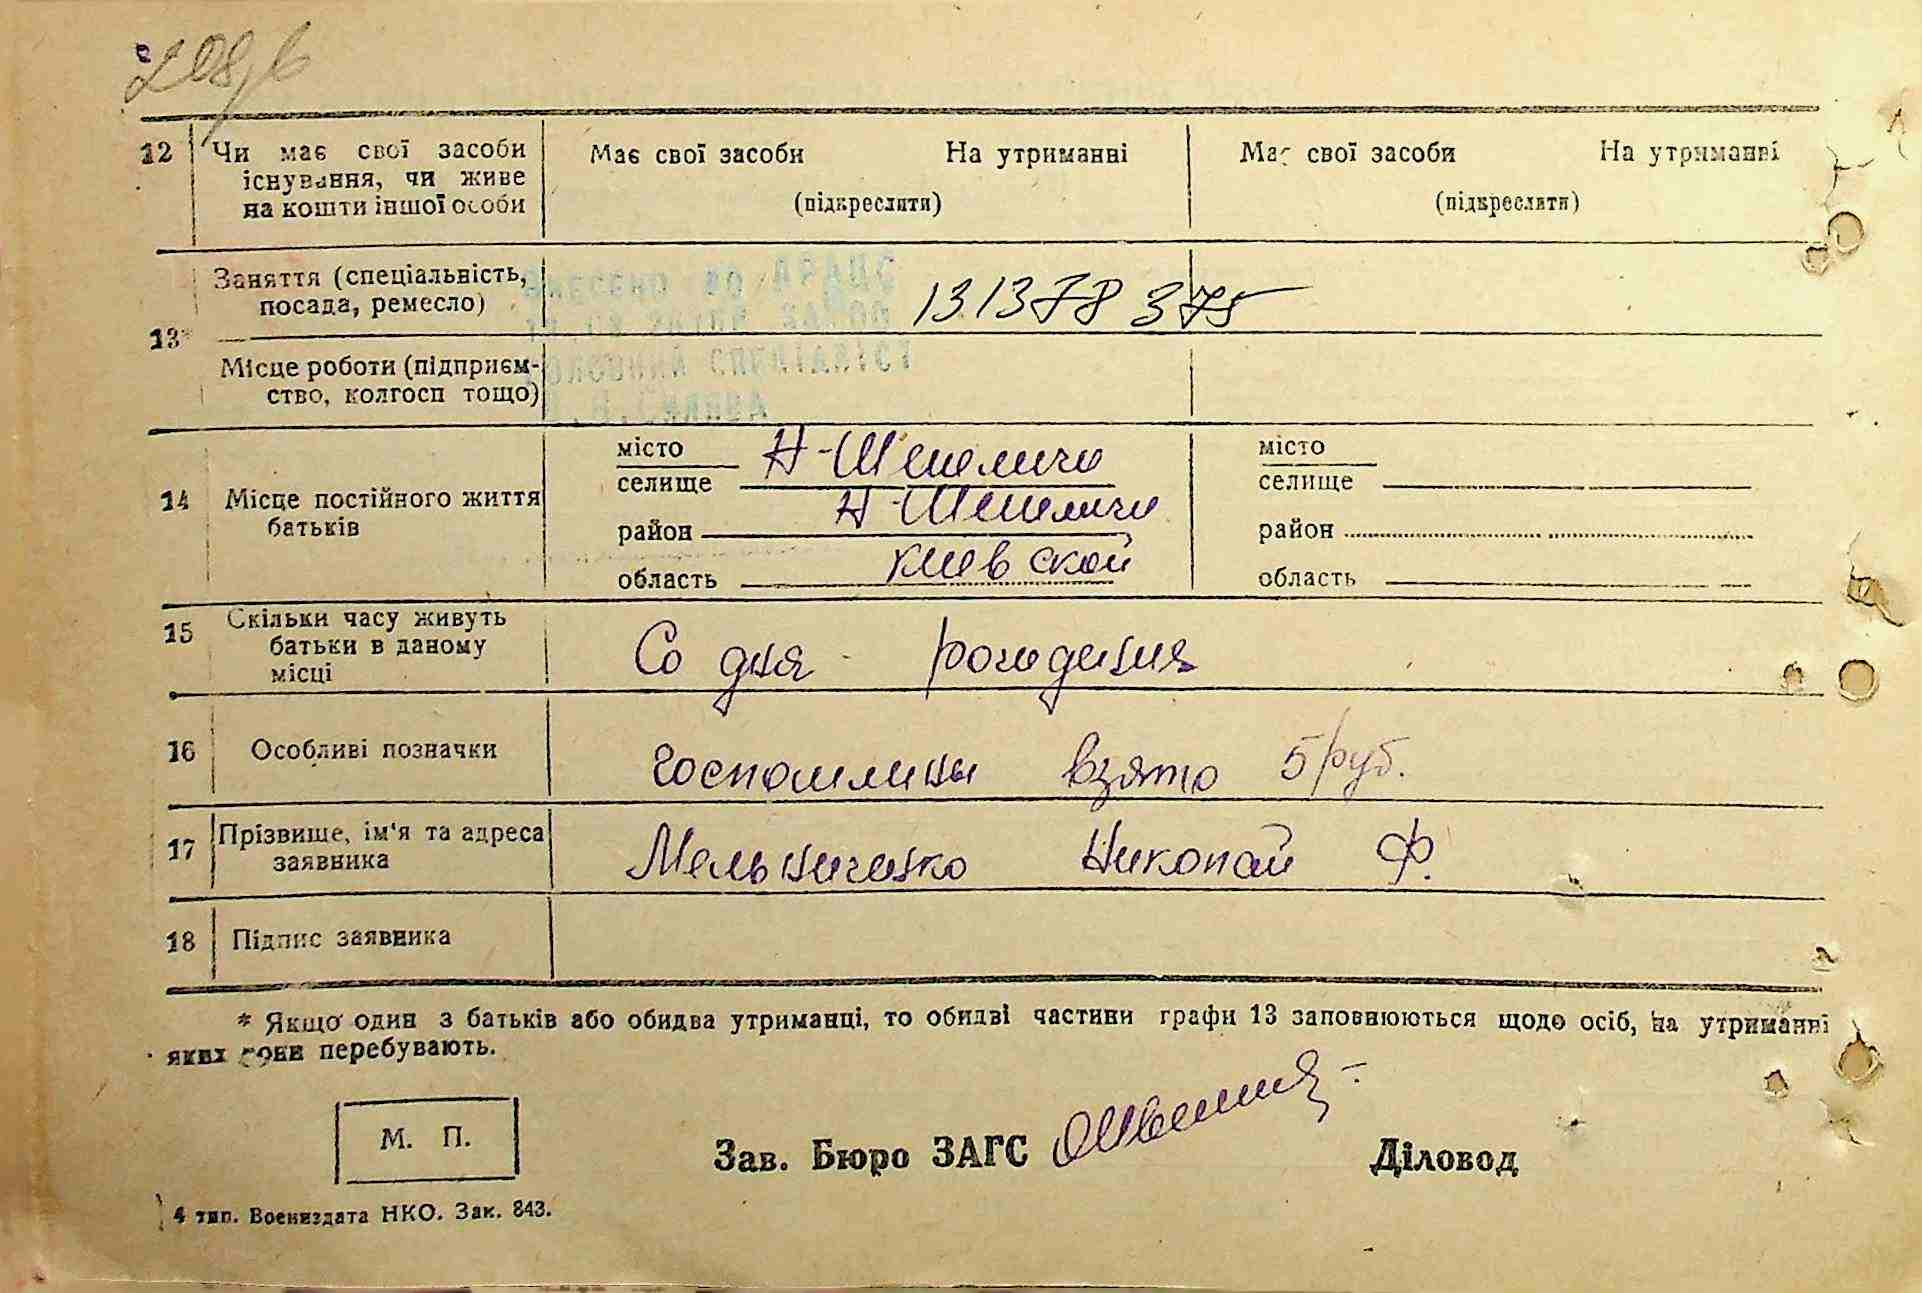 208/6
12 Чи має свої засоби Має свої засоби На утриманні Має свої засоби На утриманні
існування, чи живе
на кошти іншої особи (підкреслити) (підкреслити)
Заняття (спеціальність,
посада, ремесло) 131378 375
13*
Місце роботи (підприєм-
ство, колгосп тощо)
місто Н-Шепеличи місто
селище селище
14 Місце постійного життя Н-Шепеличи
батьків район район
киевской
область область
15 Скільки часу живуть
батьки в даному Со дня рождения
місці
16 Особливі позначки госпошлины взято 5 руб.
17 Прізвище, ім'я та адреса
заявника Мельниченко Николай Ф.
18 Підпис заявника
* Якщо один з батьків або обидва утриманці, то обидві частини графи 13 заповнюються щодо осіб, на утриманні
яких вони перебувають.
М. П.
Зав. Бюро ЗАГС Діловод
4 тип. Воениздата НКО. Зак. 843.